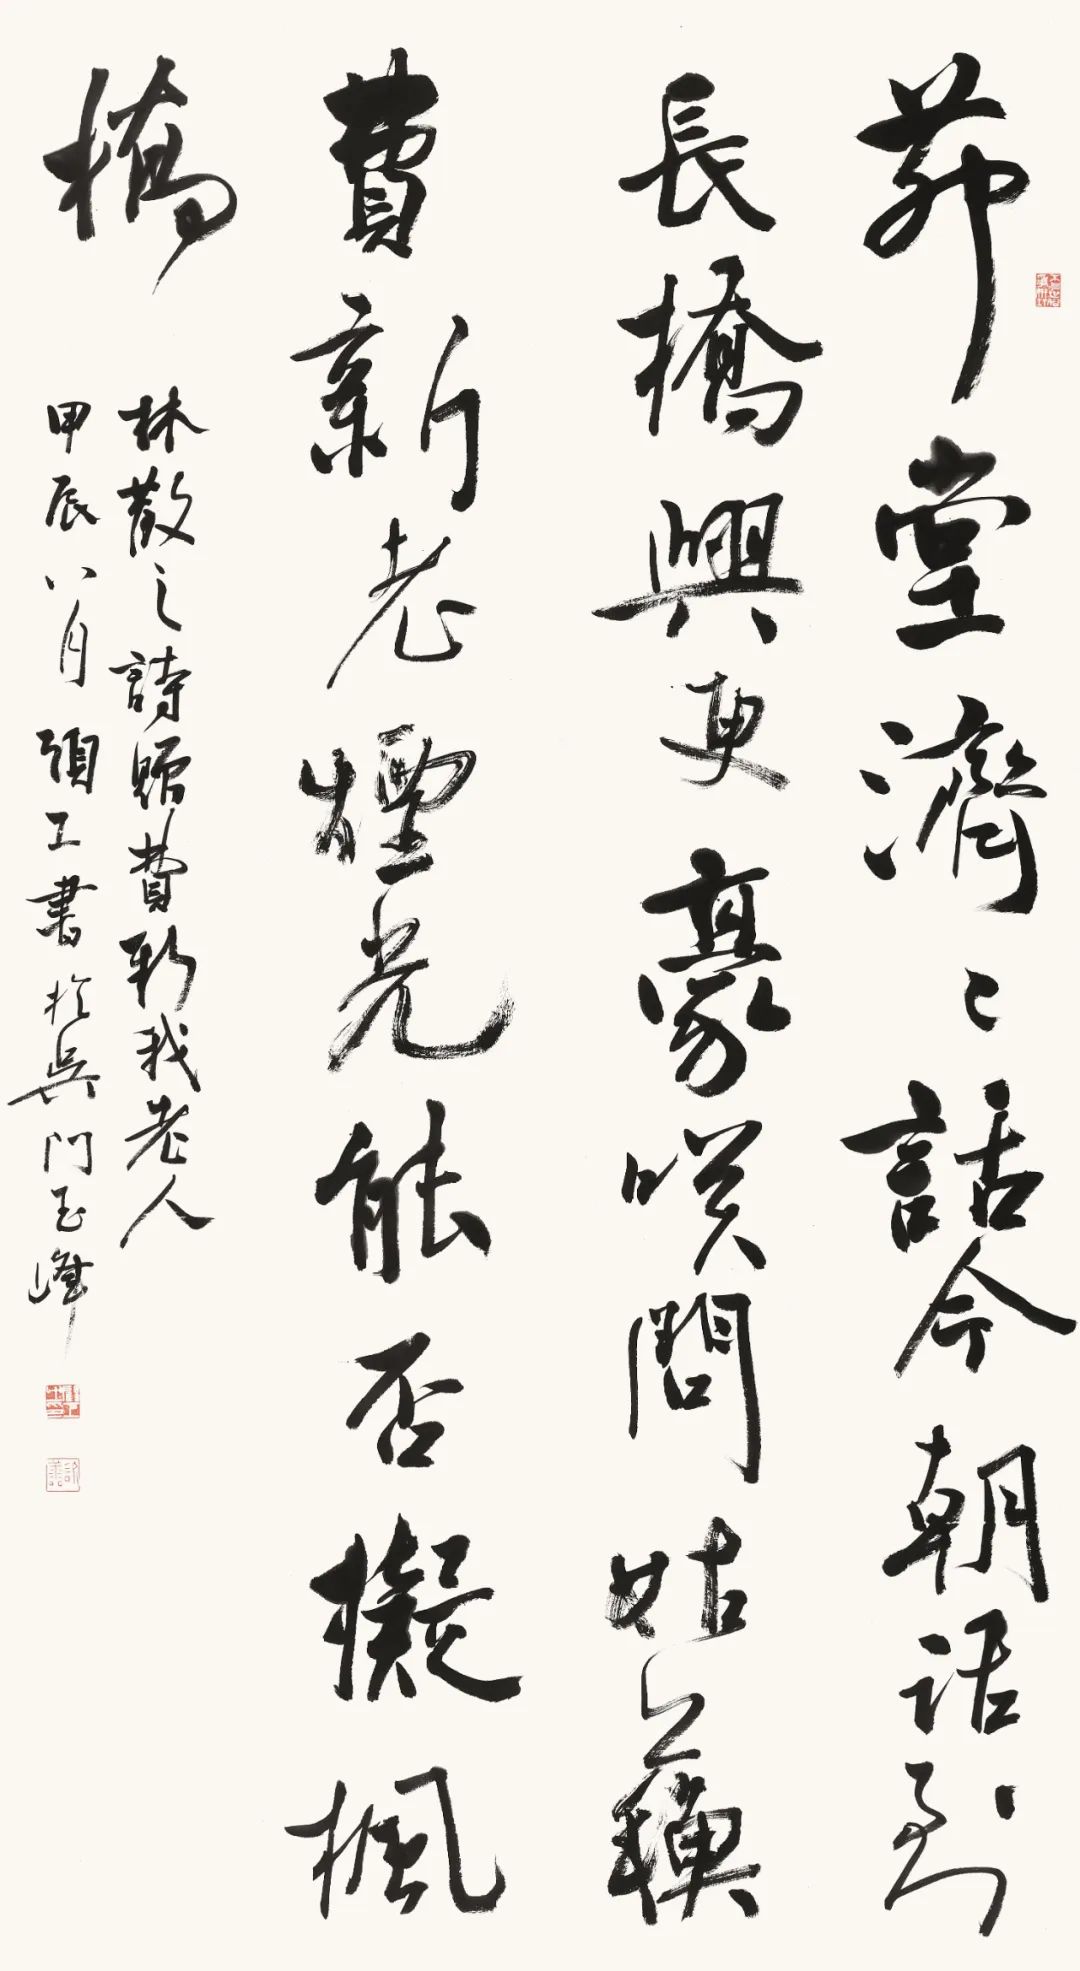 茆堂濟〻話今朝話到
長橋興更豪咲問姑蘇
費新老煙光能否擬楓
橋
林散之詩贈費新我老人
甲辰八月工書於吳門玉峰